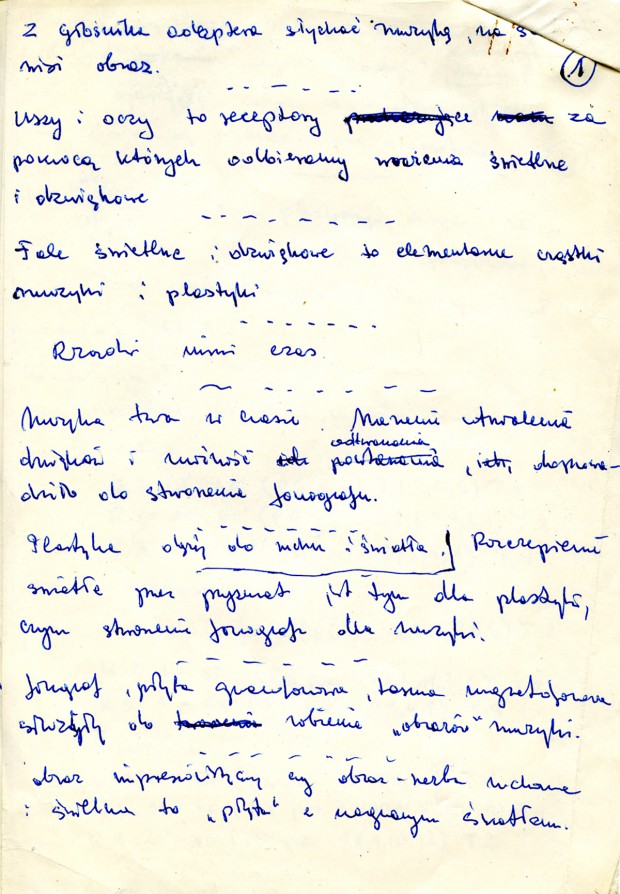 Z głośnika adaptera słychać muzykę, na
wisi obraz.
1
Uszy i oczy to receptory za
pomocą których odbieramy wrażenia świetlne
i dźwiękowe
Fale świetlne i dźwiękowe to elementarne cząstki
muzyki i plastyki
Rządzi nimi czas.
Muzyka trwa w czasie. Marzenie utrwalenia
odtworzenia
dźwięków i możność powtarzania, doprowa-
dziło do stworzenia fonografu.
Plastyka dąży do ruchu i światła. Rozczepienie
światła przez pryzmat jest tym dla plastyki,
czym stworzenie fonografu dla muzyki.
fonograf, płyta gramofonowa, taśma magnetofonowa
służyły do robienia „obrazów" muzyki.
obraz impresjonistyczny czy obraz-rzeźba ruchoma
i świetlna to „płyta" z nagranym światłem.